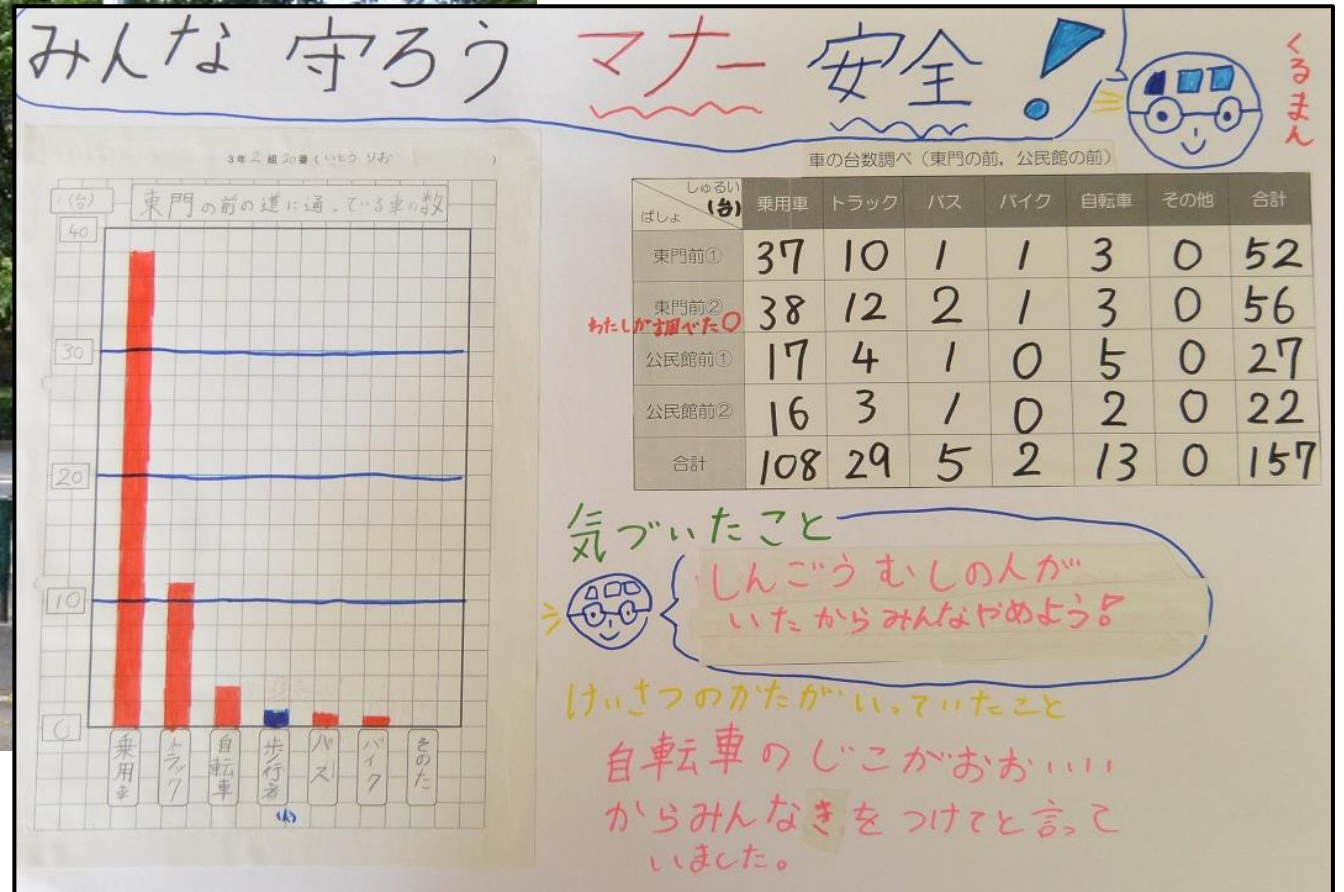 みんな 守ろう マナー 安全!
くるまん
3年2組20番(いとう りお )
(台)
東門の前の道に通っている車の数
40
30
20
10
0
乗用車
トラック
自転車
歩行者
(人)
バス
バイク
そのた
車の台数調べ(東門の前,公民館の前)
しゅるい (台) ばしょ 乗用車 トラック バス バイク 自転車 その他 合計
東門前① 37 10 1 1 3 0 52
東門前② 38 12 2 1 3 0 56
わたしが調べた○
公民館前① 17 4 1 0 5 0 27
公民館前② 16 3 1 0 2 0 22
合計 108 29 5 2 13 0 157
気づいたこと
しんごうむしの人が
いたからみんなやめよう!
けいさつのかたがいっていたこと
自転車のじこがおおいい
からみんなきをつけてと言って
いました。